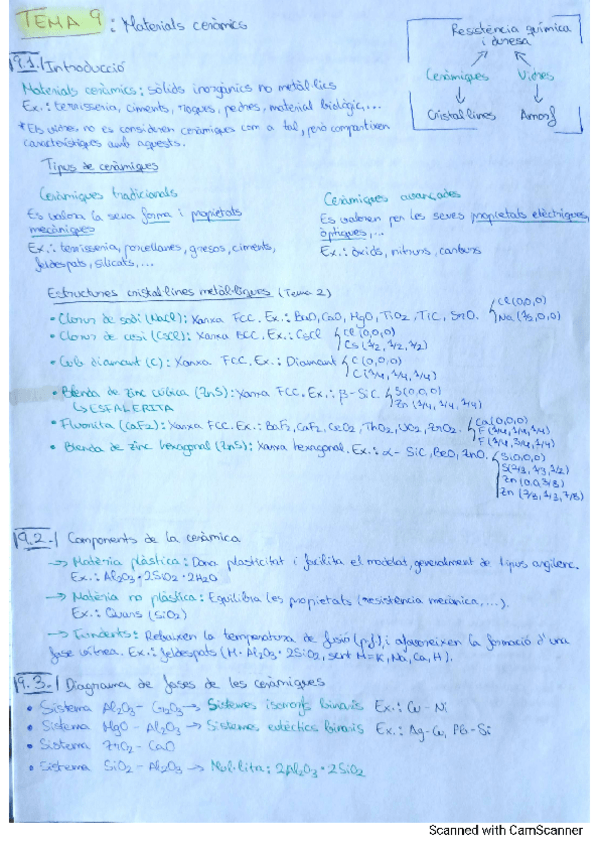 TEMA 9: Materials ceràmics
Resistència química
i duresa
Ceràmiques Vidres
Cristal·lines Amorf
9.1. Introducció
Materials ceràmics: sòlids inorgànics no metàl·lics
Ex.: terrisseria, ciments, roques, pedres, material biològic,...
*Els vidres no es consideren ceràmiques com a tal, però comparteixen
característiques amb aquests.
Tipus de ceràmiques
Ceràmiques tradicionals
Es valora la seva forma i propietats
mecàniques
Ex.: terrisseria, porcellanes, gresos, ciments,
feldespats, silicats,...
Ceràmiques avançades
Es valoren per les seves propietats elèctriques,
òptiques,...
Ex.: òxids, nitrurs, carburs
Estructures cristal·lines metàl·liques (Tema 2)
• Clorur de sodi (NaCl): Xarxa FCC. Ex.: BaO, CaO, MgO, TiO2, TiC, SrO.
Cl (0,0,0)
Na (½,0,0)
• Clorur de cesi (CsCl): Xarxa BCC. Ex.: CsCl
Cl (0,0,0)
Cs (1/2, 1/2, 1/2)
• Cub diamant (C): Xarxa FCC. Ex.: Diamant
C (0,0,0)
C (1/4, 1/4, 1/4)
• Blenda de zinc cúbica (ZnS): Xarxa FCC. Ex.: β-SiC
S (0,0,0)
Zn (1/4, 1/4, 1/4)
↳ ESFALERITA
• Fluorita (CaF2): Xarxa FCC. Ex.: BaF2, CaF2, CeO2, ThO2, UO2, ZrO2.
Ca (0,0,0)
F (1/4, 1/4, 1/4)
F (3/4, 3/4, 3/4)
• Blenda de zinc hexagonal (ZnS): Xarxa hexagonal. Ex.: α- SiC, BeO, ZnO.
S (0,0,0)
S (2/3, 1/3, 1/2)
Zn (0,0,3/8)
Zn (2/3, 1/3, 7/8)
9.2. Components de la ceràmica
→ Matèria plàstica: Dona plasticitat i facilita el modelat, generalment de tipus argilenc.
Ex.: Al2O3 · 2SiO2 · 2H2O
→ Matèria no plàstica: Equilibra les propietats (resistència mecànica,...).
Ex.: Quars (SiO2)
→ Fundents: Rebaixen la temperatura de fusió (pf), i afavoreixen la formació d'una
fase vítrea. Ex.: feldespats (M · Al2O3 · 2SiO2, sent M=K, Na, Ca, H).
9.3. Diagrama de fases de les ceràmiques
• Sistema Al2O3 - Cr2O3 → Sistemes isomorfs binaris Ex.: Cu - Ni
• Sistema MgO - Al2O3 → Sistemes eutèctics binaris Ex.: Ag-Cu, Pb-Si
• Sistema ZrO2 - CaO
• Sistema SiO2 - Al2O3 → Mul·lita: 2Al2O3 · 2SiO2
Scanned with CamScanner